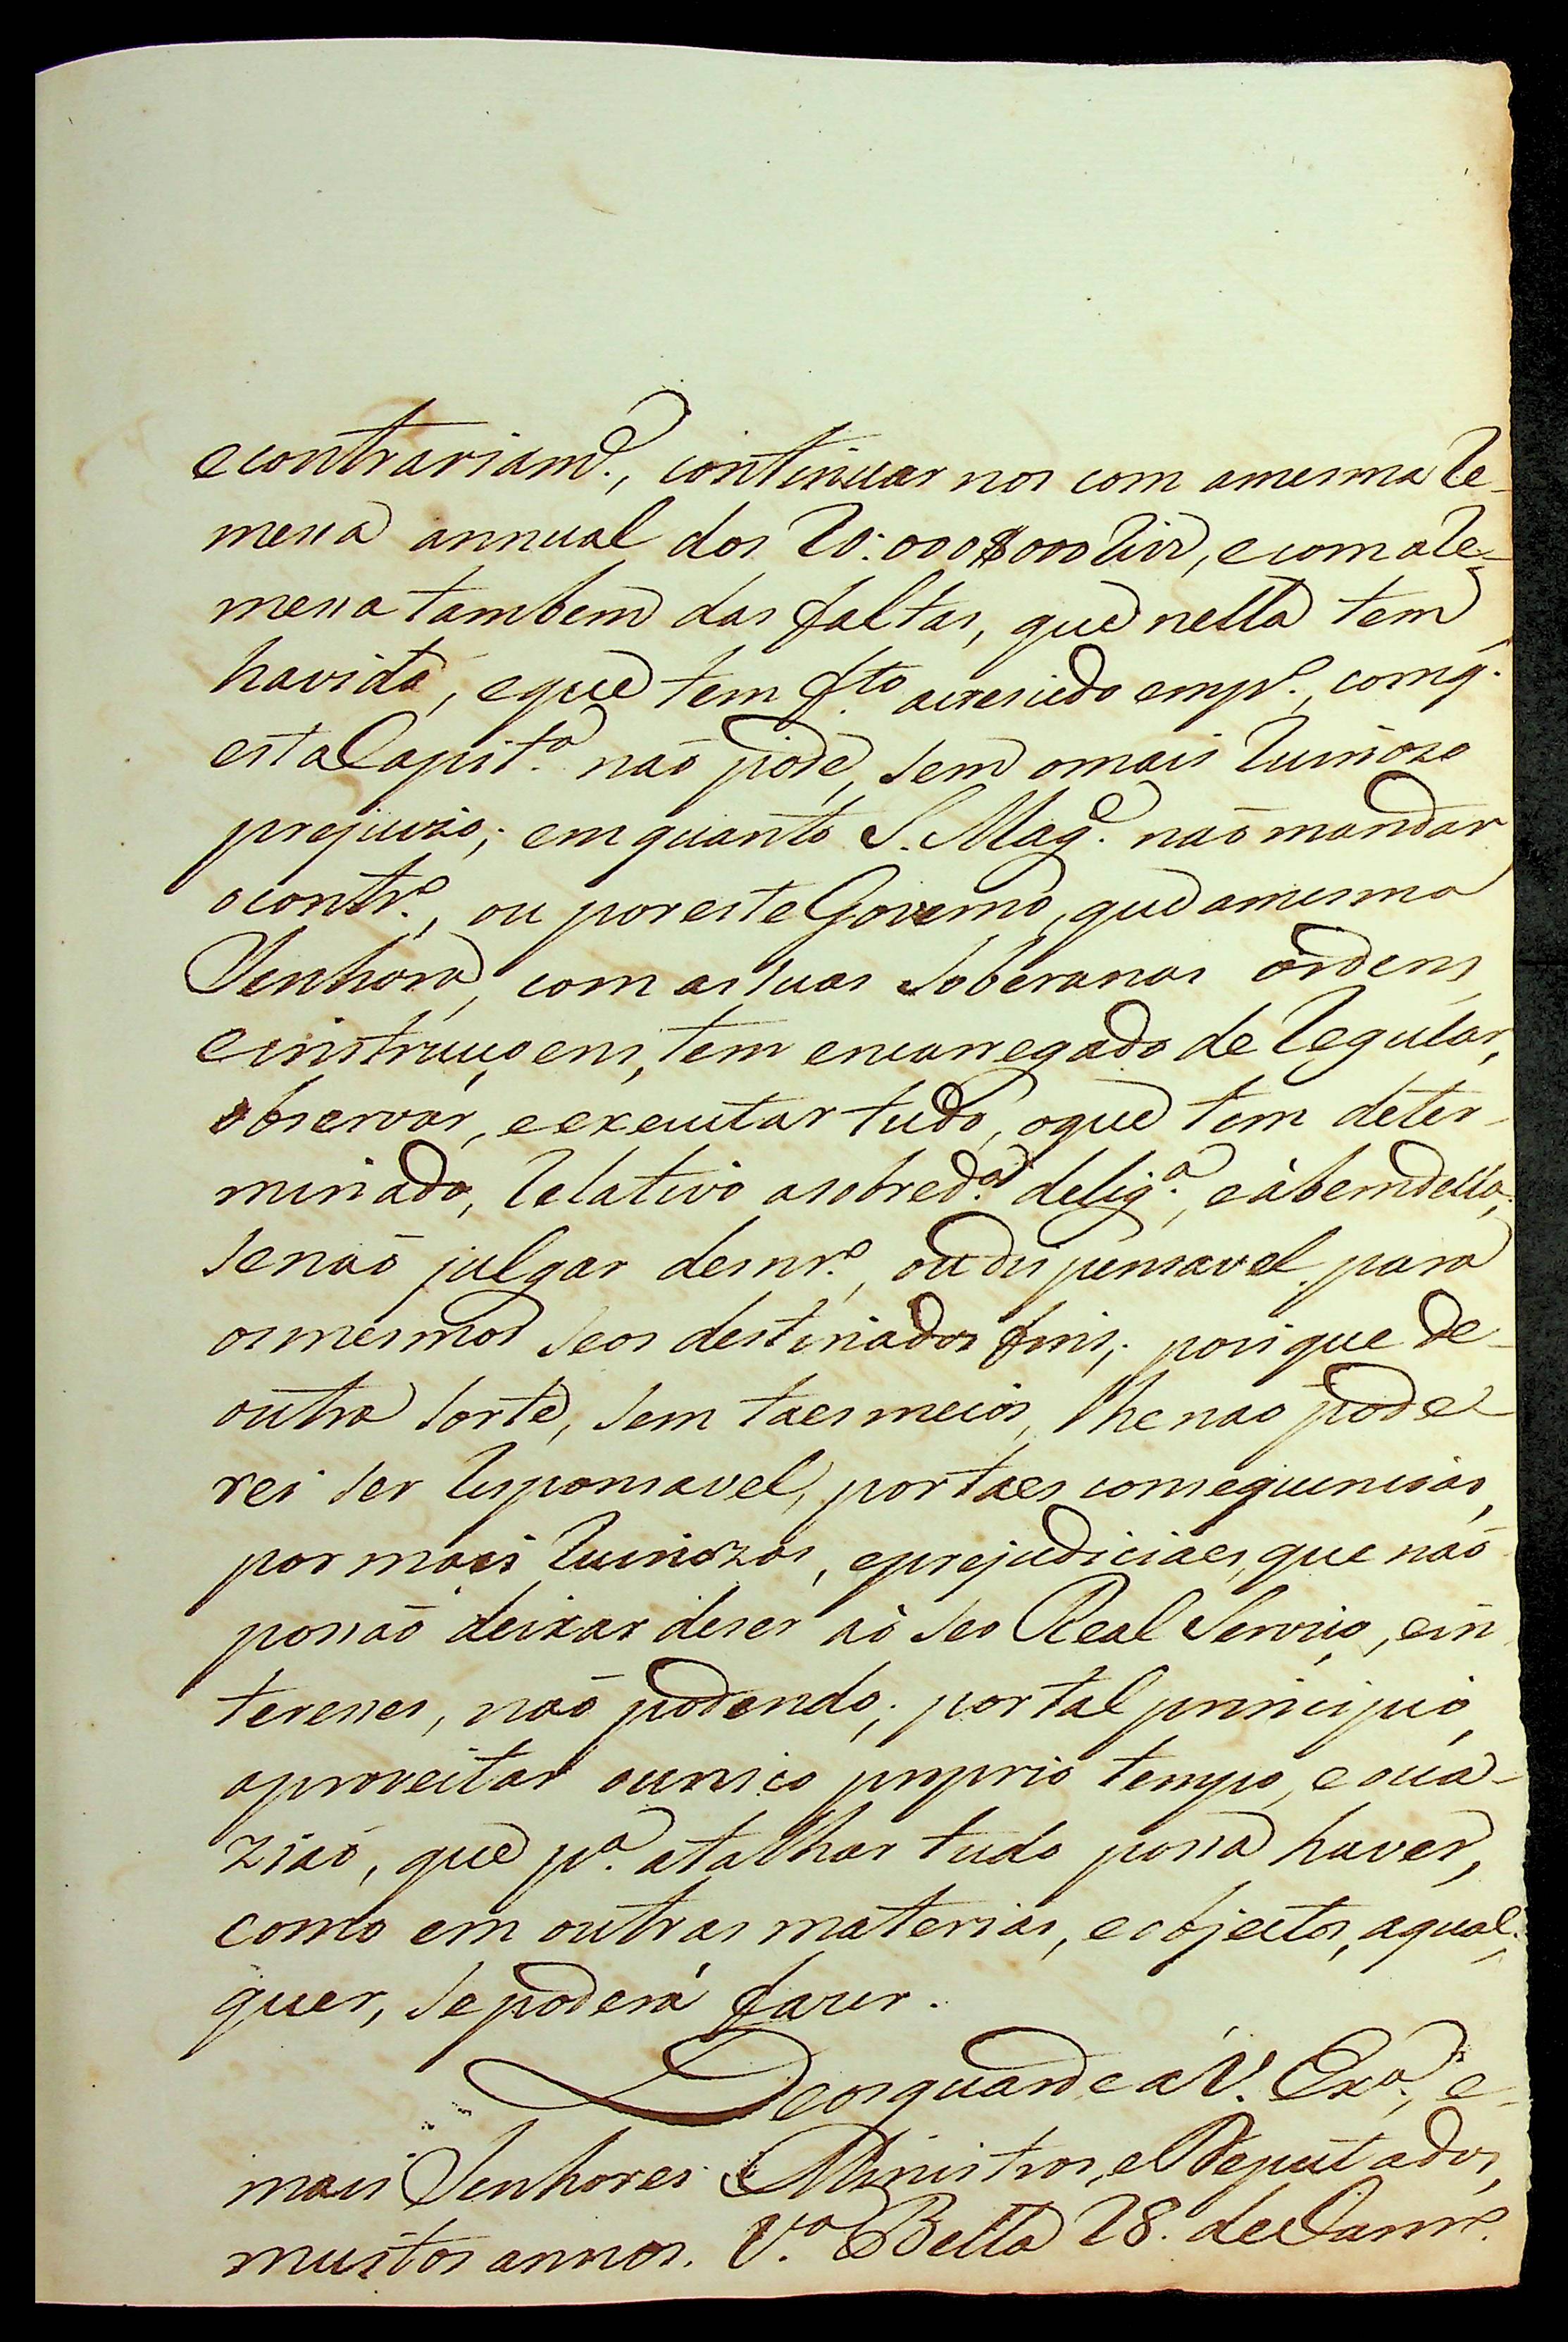 e contrariam.e, continuar nos com amesma re-
messa annual dos 20:000$000 reis, ecom a re-
messa tambem das faltas, que nella tem
havido, eque tem f.to acrescido emp.e, comq.
esta Capit.a não póde, sem omais ruinozo
prejuizo; emquanto S. Mag.e não mandar
ocontr.o, ou por este Governo, que amesma
Senhora, com as suas soberanas ordens,
e instruçoens, tem encarregado de regular,
observar, e executar tudo, oque tem deter-
minado, relativo a sobred.a delig.a, e àbemdella,
senão julgar desnr.o, ou dispensavel para
os mesmos seos destinados fins; por que de-
outra sorte, sem taes meios, lhe nao pode-
rei ser responsavel, por taes consequencias,
por mais ruinozas, e prejudiciaes, que não
possaõ deixar deser aò seo Real Serviço, ein
teresses, não podendo; por tal principio,
aproveitar o unico proprio tempo, e occa-
ziaõ, que p.a atalhar tudo possa haver,
como em outras materias, e objectos, aqual-
quer, se poderá fazer.
Deos guarde a V. Ex.a, e-
mais Senhores Ministros, e Deputados,
muitos annos. V.a Bella 28. de Janr.o